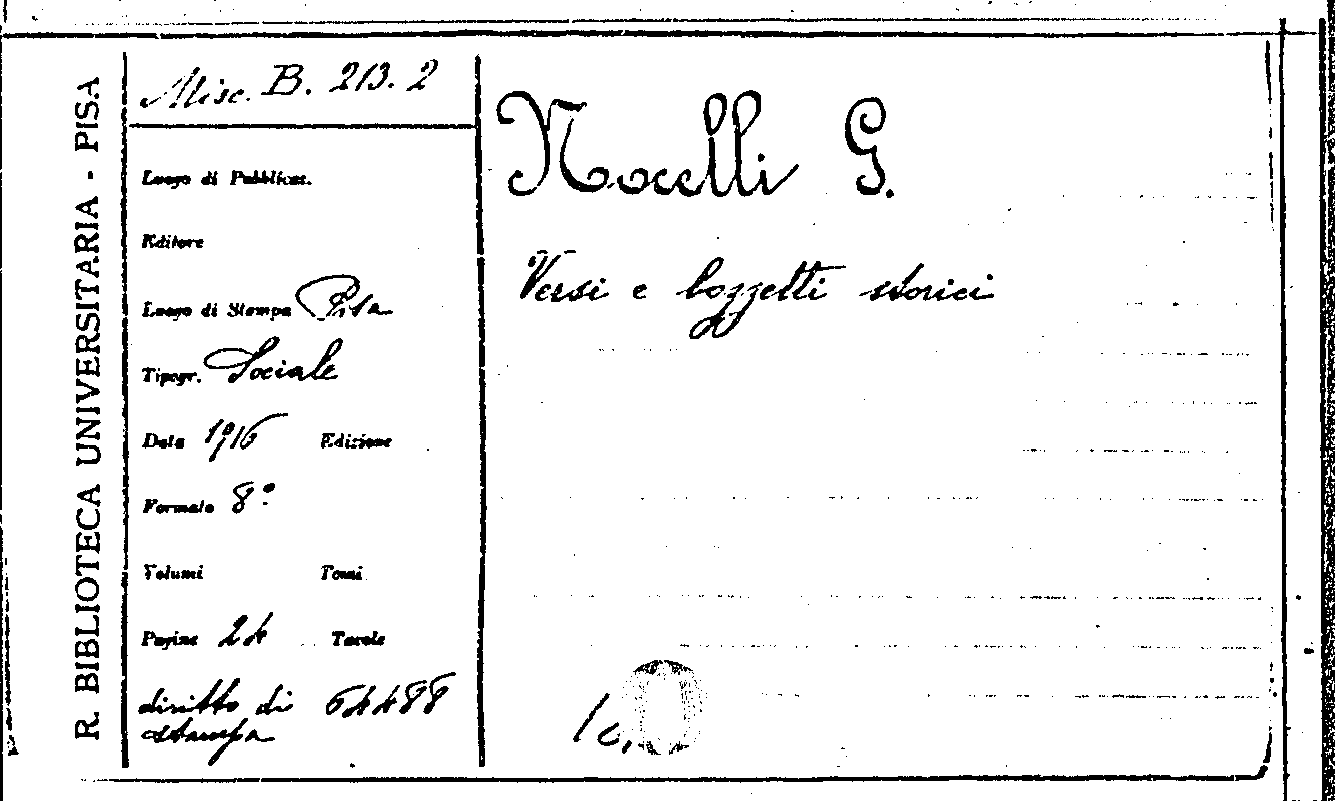 R. BIBLIOTECA UNIVERSITARIA - PISA
Misc. B. 213. 2
Luogo di Pubblicaz.
Editore
Luogo di Stampa Pisa
Tipogr. Sociale
Data 1916 Edizione
Formato 8º
Volumi Tomi
Pagine 24 Tavole
diritto di 64488
stampa
Nocelli G.
Versi e bozzetti storici